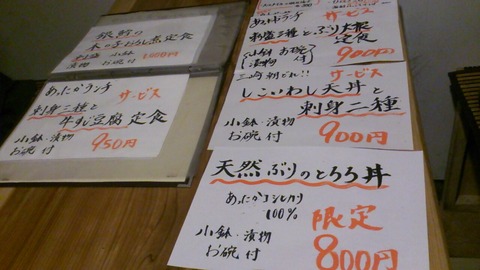 銀鱈の
木の子おろし煮定食
小鉢
漬物 お碗付 1000円
あたかランチ サービス
刺身二種と
牛すじ豆腐定食
小鉢・漬物
お碗付 950円
サービス
刺盛二種とぶり大根
定食
小鉢 お碗
漬物 付
900円
三崎朝どれ!! サービス
しこいわし天丼と
刺身二種
小鉢・漬物
お碗付 900円
天然ぶりのとろろ丼
100%
小鉢・漬物
お碗付
限定
800円